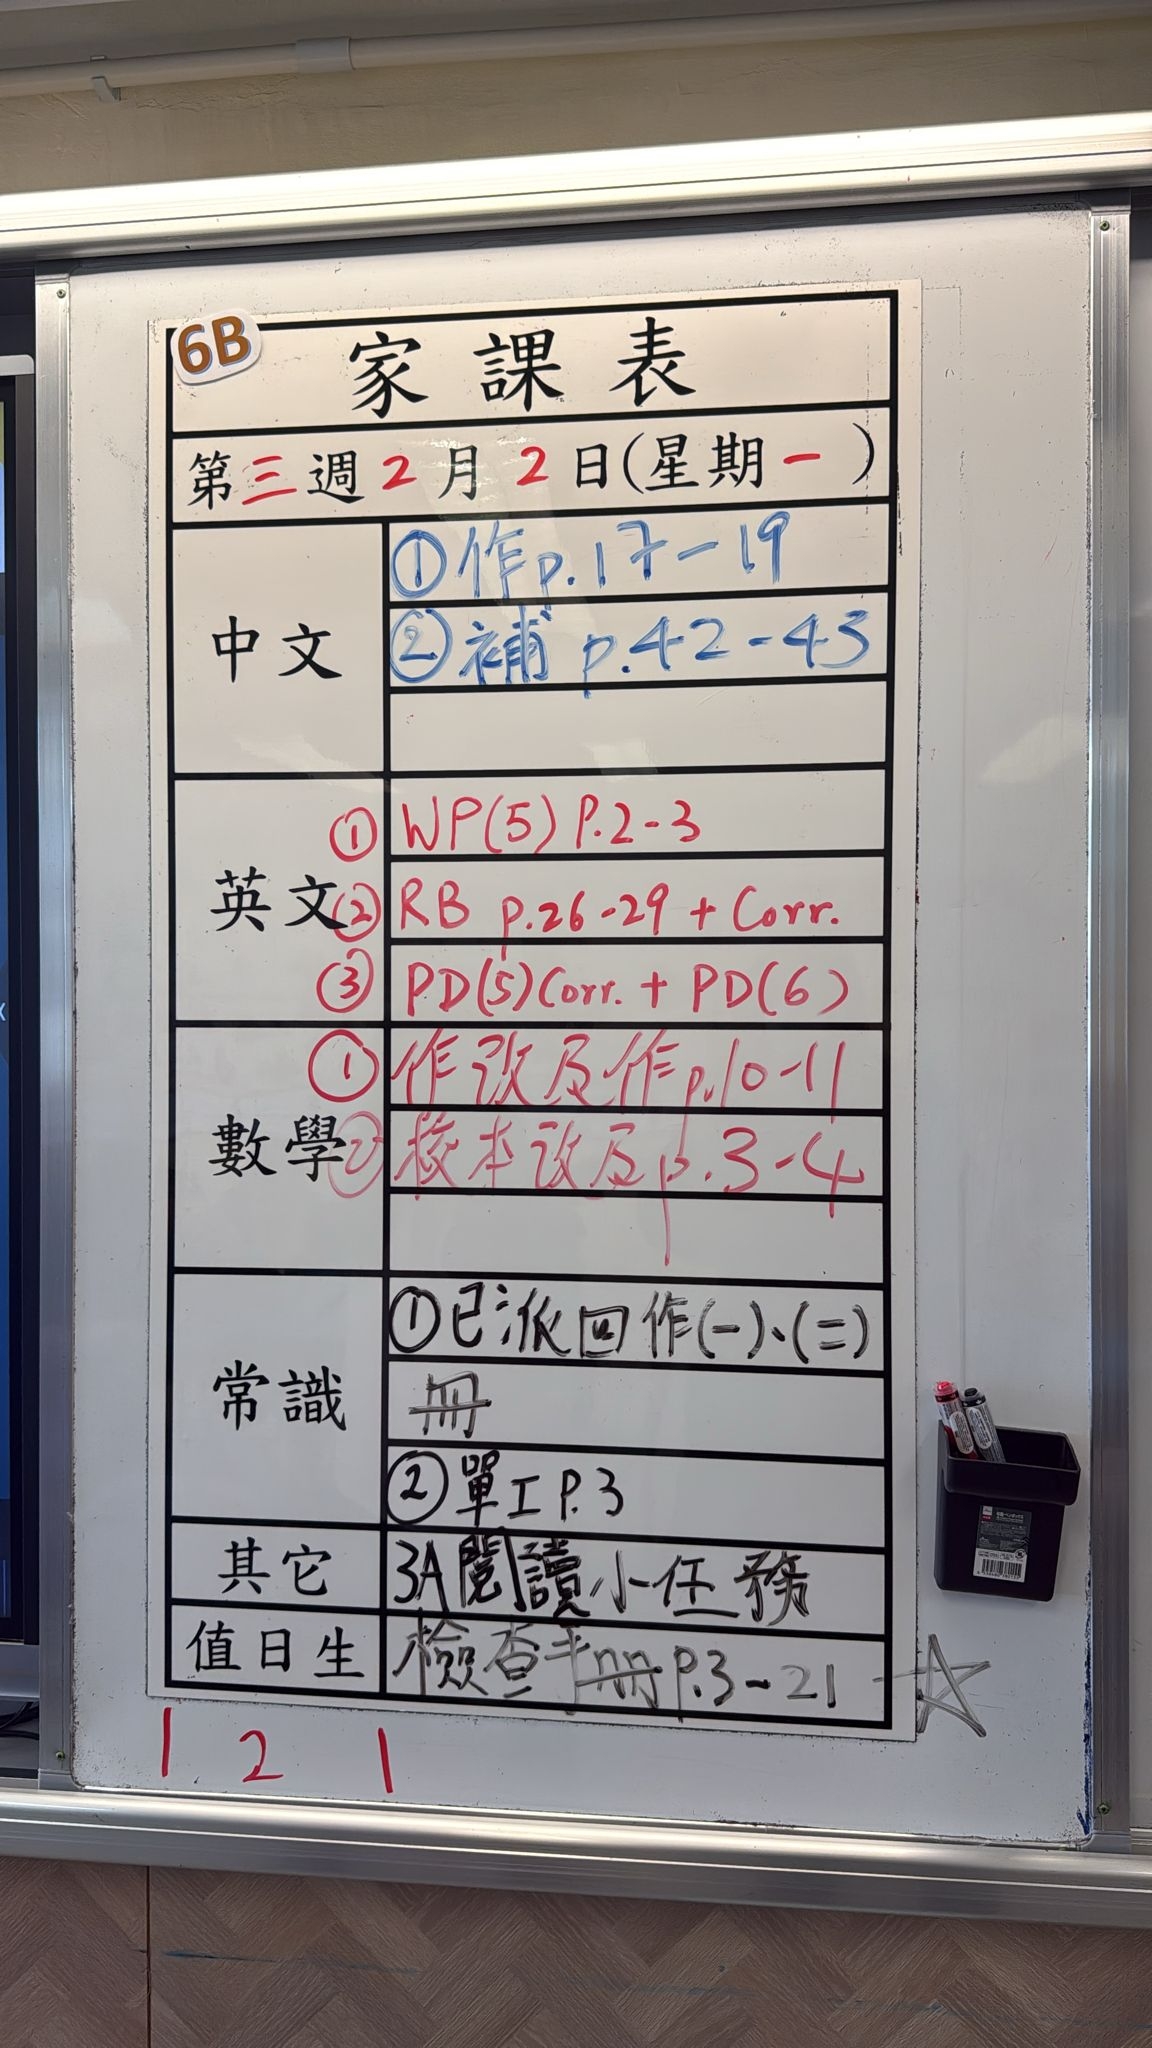 6B
家課表
第三週2月2日(星期一)
中文
①作p.17-19
②補 p.42-43
英文
① WP(5) P.2-3
② RB p.26-29 + Corr.
③ PD(5)Corr. + PD(6)
數學
① 作改及作p.10-11
② 校本改及p.3-4
常識
①已派回作(一)、(二)
冊
②單工P.3
其它
3A閱讀小任務
值日生
檢查手冊P.3-21
1 2 1